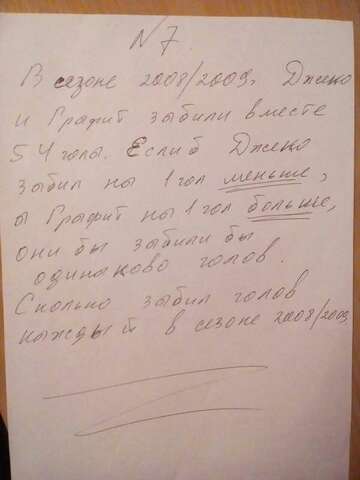 № 7
В сезоне 2008/2009г. Джеко
и Графит забили вместе
54 гола. Если б Джеко
забил на 1 гол меньше,
а Графит на 1 гол больше,
они бы забили бы
одинаково голов.
Сколько забил голов
каждый в сезоне 2008/2009.